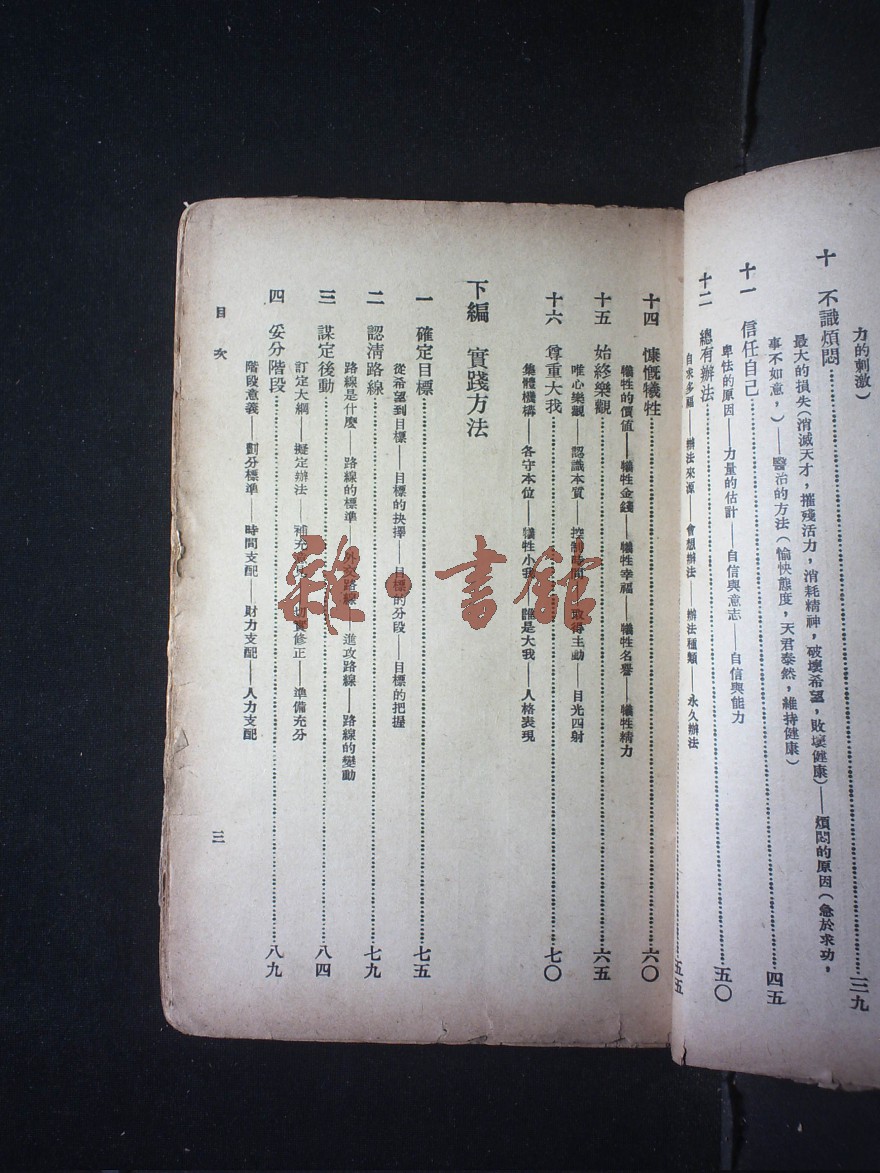 力的刺激)
十 不識煩悶……三九
最大的損失(消滅天才,摧殘活力,消耗精神,破壞希望,敗壞健康)——煩悶的原因(急於求功,
事不如意,)——醫治的方法(愉快態度,天君泰然,維持健康)
十一 信任自己……四五
卑怯的原因——力量的估計——自信與意志——自信與能力
十二 總有辦法……五〇
自求多福——辦法來源——會想辦法——辦法種類——永久辦法
五五
十四 慷慨犧牲……六〇
犧牲的價值——犧牲金錢——犧牲幸福——犧牲名譽——犧牲精力
十五 始終樂觀……六五
唯心樂觀——認識本質——控制時間——取得主動——目光四射
十六 尊重大我……七〇
集體機構——各守本位——犧牲小我——誰是大我——人格表現
下編 實踐方法
一 確定目標……七五
從希望到目標——目標的抉擇——目標的分段——目標的把握
二 認清路線……七九
路線是什麽——路線的標準——路線——進攻路線——路線的變動
三 謀定後動……八四
訂定大綱——擬定辦法——補充——切實修正——準備充分
四 妥分階段……八九
階段意義——劃分標準——時間支配——財力支配——人力支配
目次
三
雜·書館